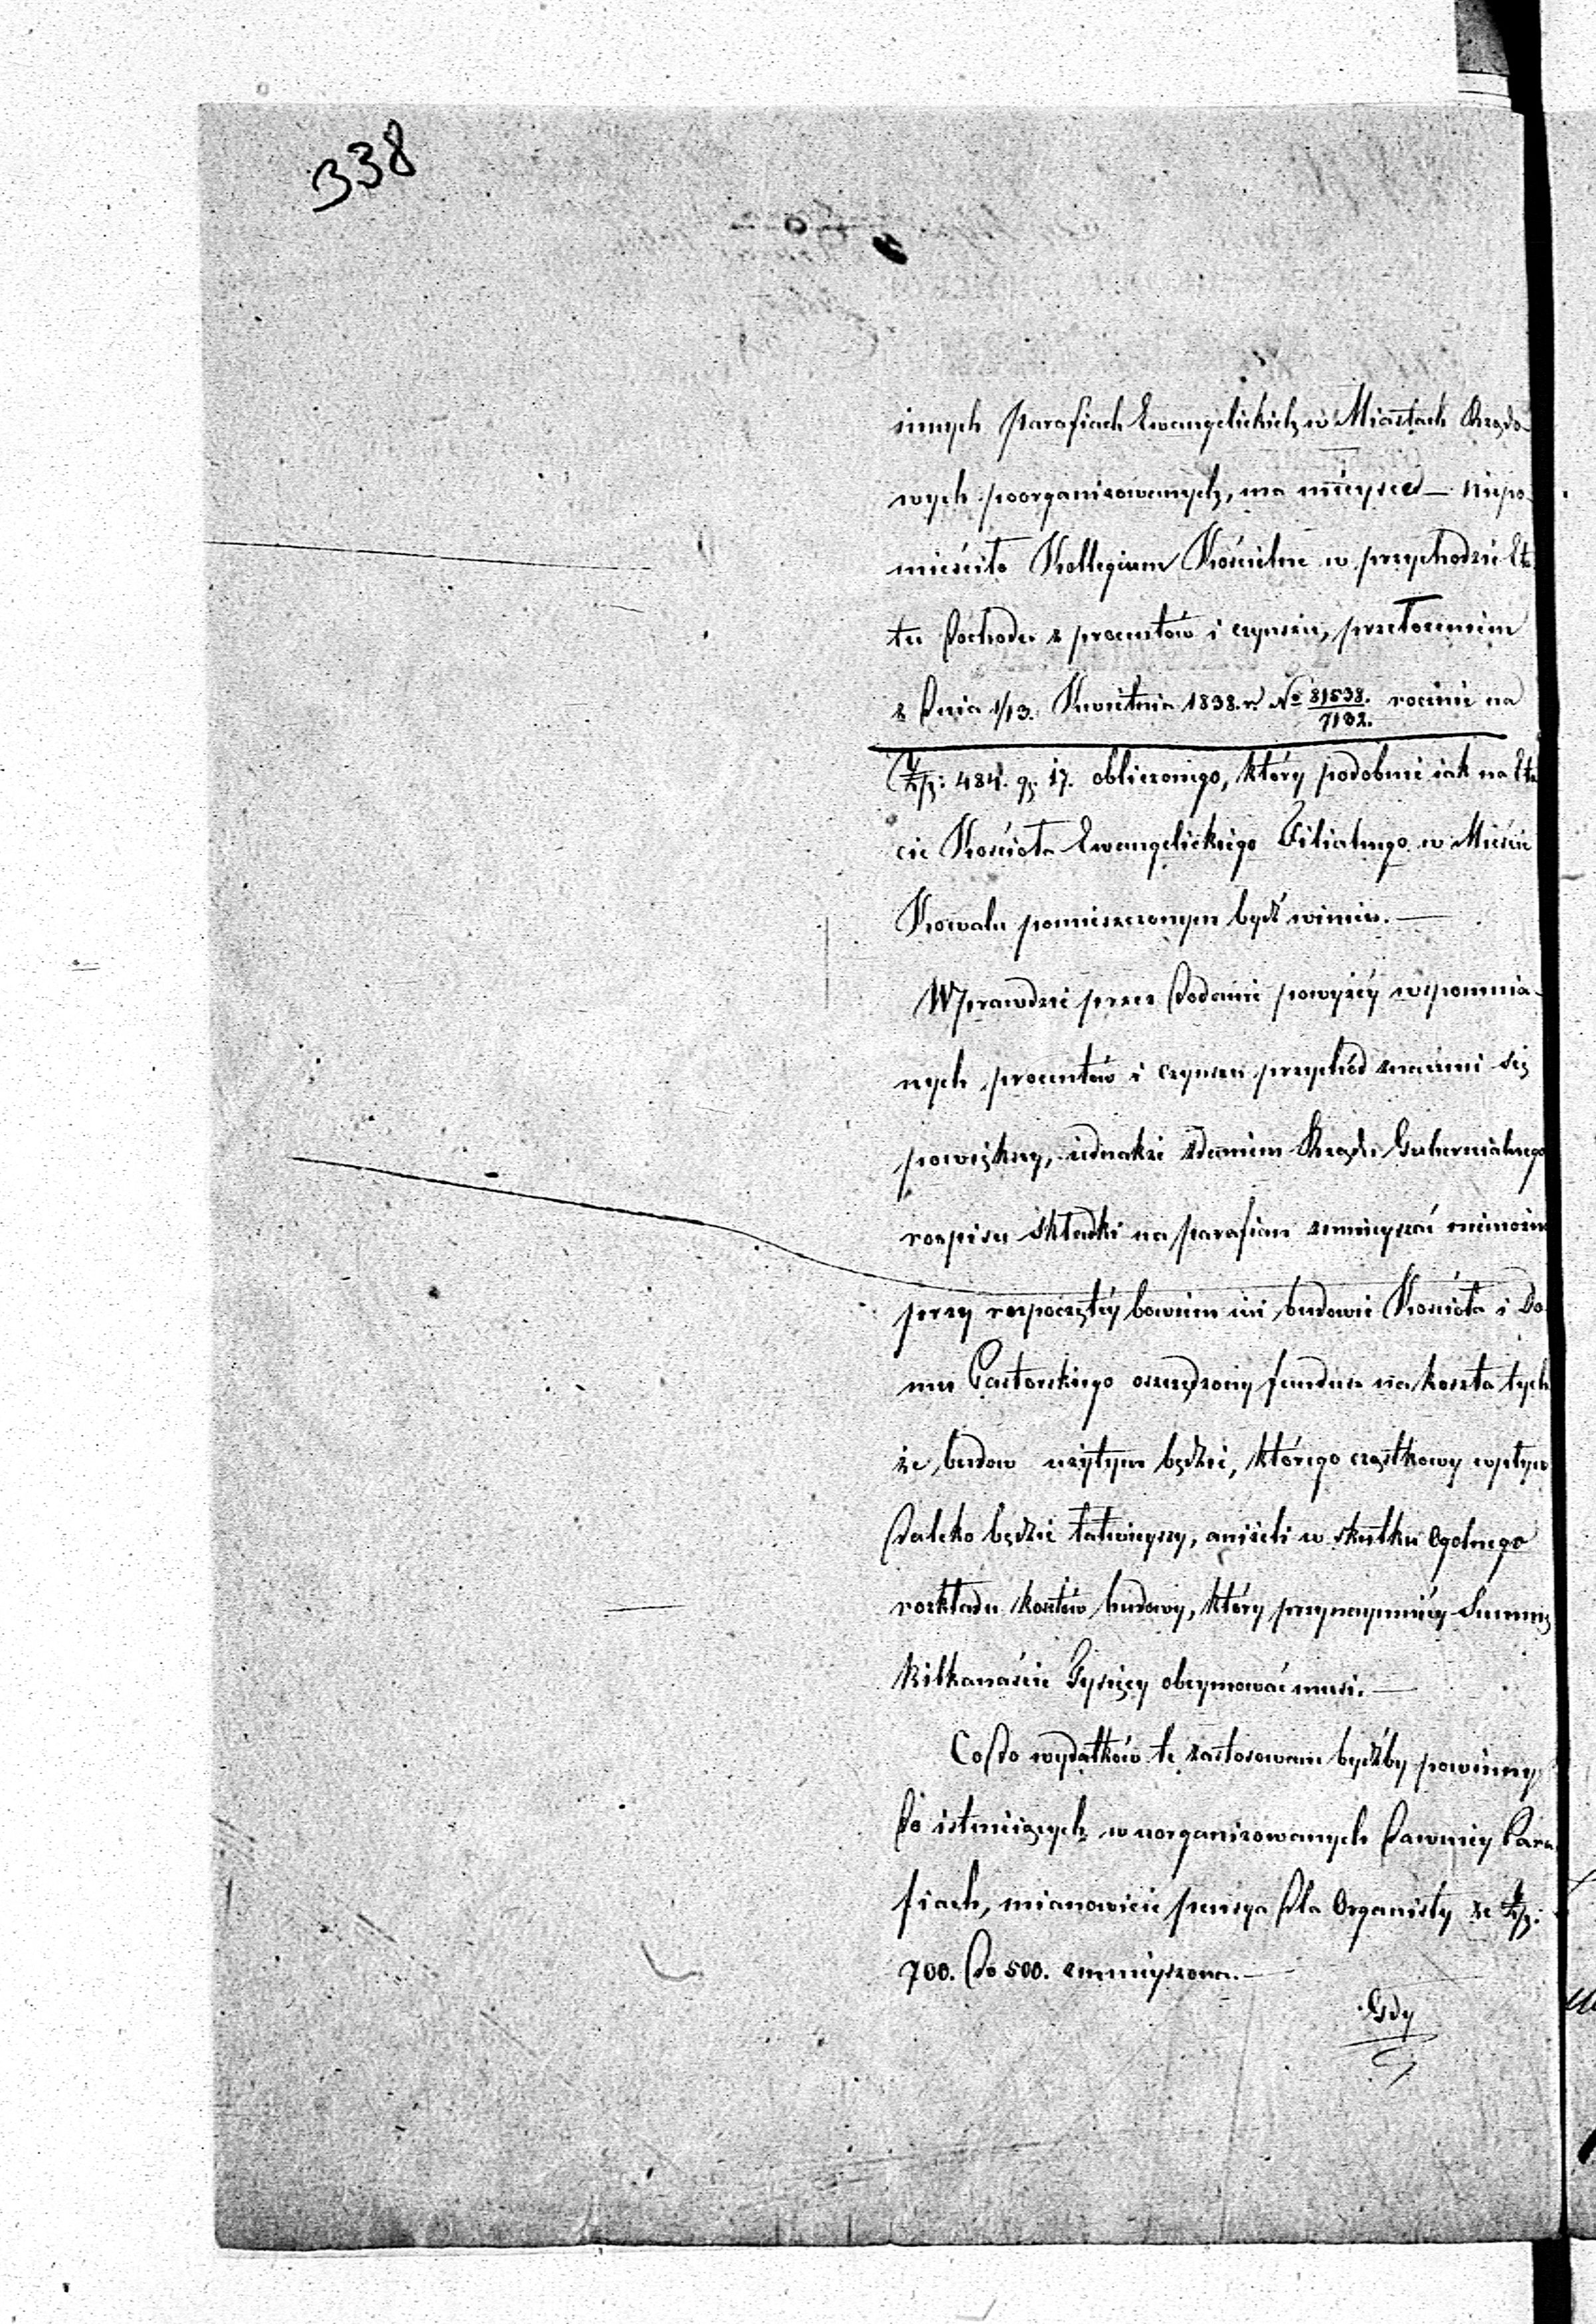 338
innych Parafiach Ewangelickich w Miastach Rządo-
wych poorganizowanych, ma mieysce — niepo-
mieściło Kollegium Kościelne w przychodzie Eta
tu dochodu z procentów i czynszu, przełoceniem
z Dnia 1/13. Kwietnia 1838. r. No 81538./7132. rocznie na
Złp: 484. gr. 17. obliczonego, który podobnie iak na Eta
cie Kościoła Ewangelickiego Filialnego w Mieście
Kowalu pomieszczonym bydź winien. —
Wprawdzie przez dodanie powyżéy wspomnia-
nych procentów i czynszu przychód znacznie się
powiększy, iednakże zdaniem Rządu Gubernialnego
rospisu składki na parafian zmnieyszać niemożna
przy rozpoczętéy bowiem iuż budowie Kościoła i Do
mu Pastorskiego oszczędzony fundusz na koszta tych
że budow użytym będzie, którego cząstkowy wpływ
daleko będzie łatwieyszy, aniżeli w skutku ogolnego
rozkładu kosztów budowy, który przynaymniéy Summę
kilkanaście Tysięcy obeymować musi. —
Co do wydatków te zastosowane bydźby powinny
do istnieiących w uorganizowanych dawniey Para
fiach, mianowicie pensya dla Organisty ze Złp:
700. do 500. zmnieyszona. —
Gdy